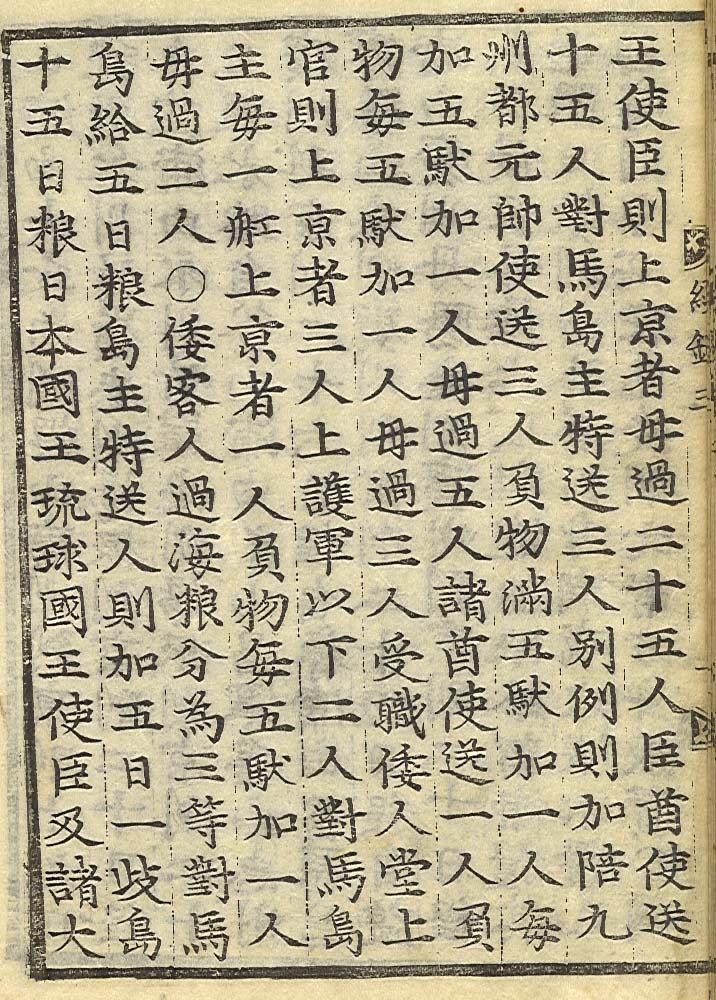 王使臣則上京者毋過二十五人臣酋使送
十五人對馬島主特送三人别例則加陪九
州都元帥使送三人負物滿五䭾加一人每
加五䭾加一人毋過五人諸酋使送一人負
物每五䭾加一人毋過三人受職倭人堂上
官則上京者三人上護軍以下二人對馬島
主每一舡上京者一人負物每五䭾加一人
毋過二人○倭客人過海粮分為三等對馬
島給五日粮島主特送人則加五日一歧島
十五日粮日本國王琉球國王使臣及諸大
三